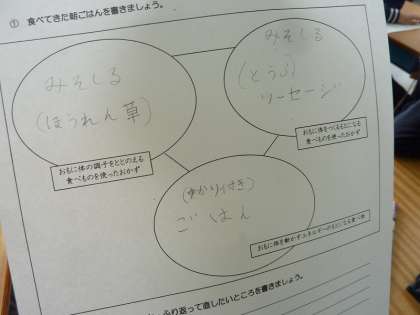 ① 食べてきた朝ごはんを書きましょう。
みそしる
(ほうれん草)
おもに体の調子をととのえる
食べものを使ったおかず
みそしる
(とうふ)
ソーセージ
おもに体をつくるもとになる
食べものを使ったおかず
(ゆかり付き)
ごはん
おもに体を動かすエネルギーのもとになる食べ物
ふり返って直したいところを書きましょう。